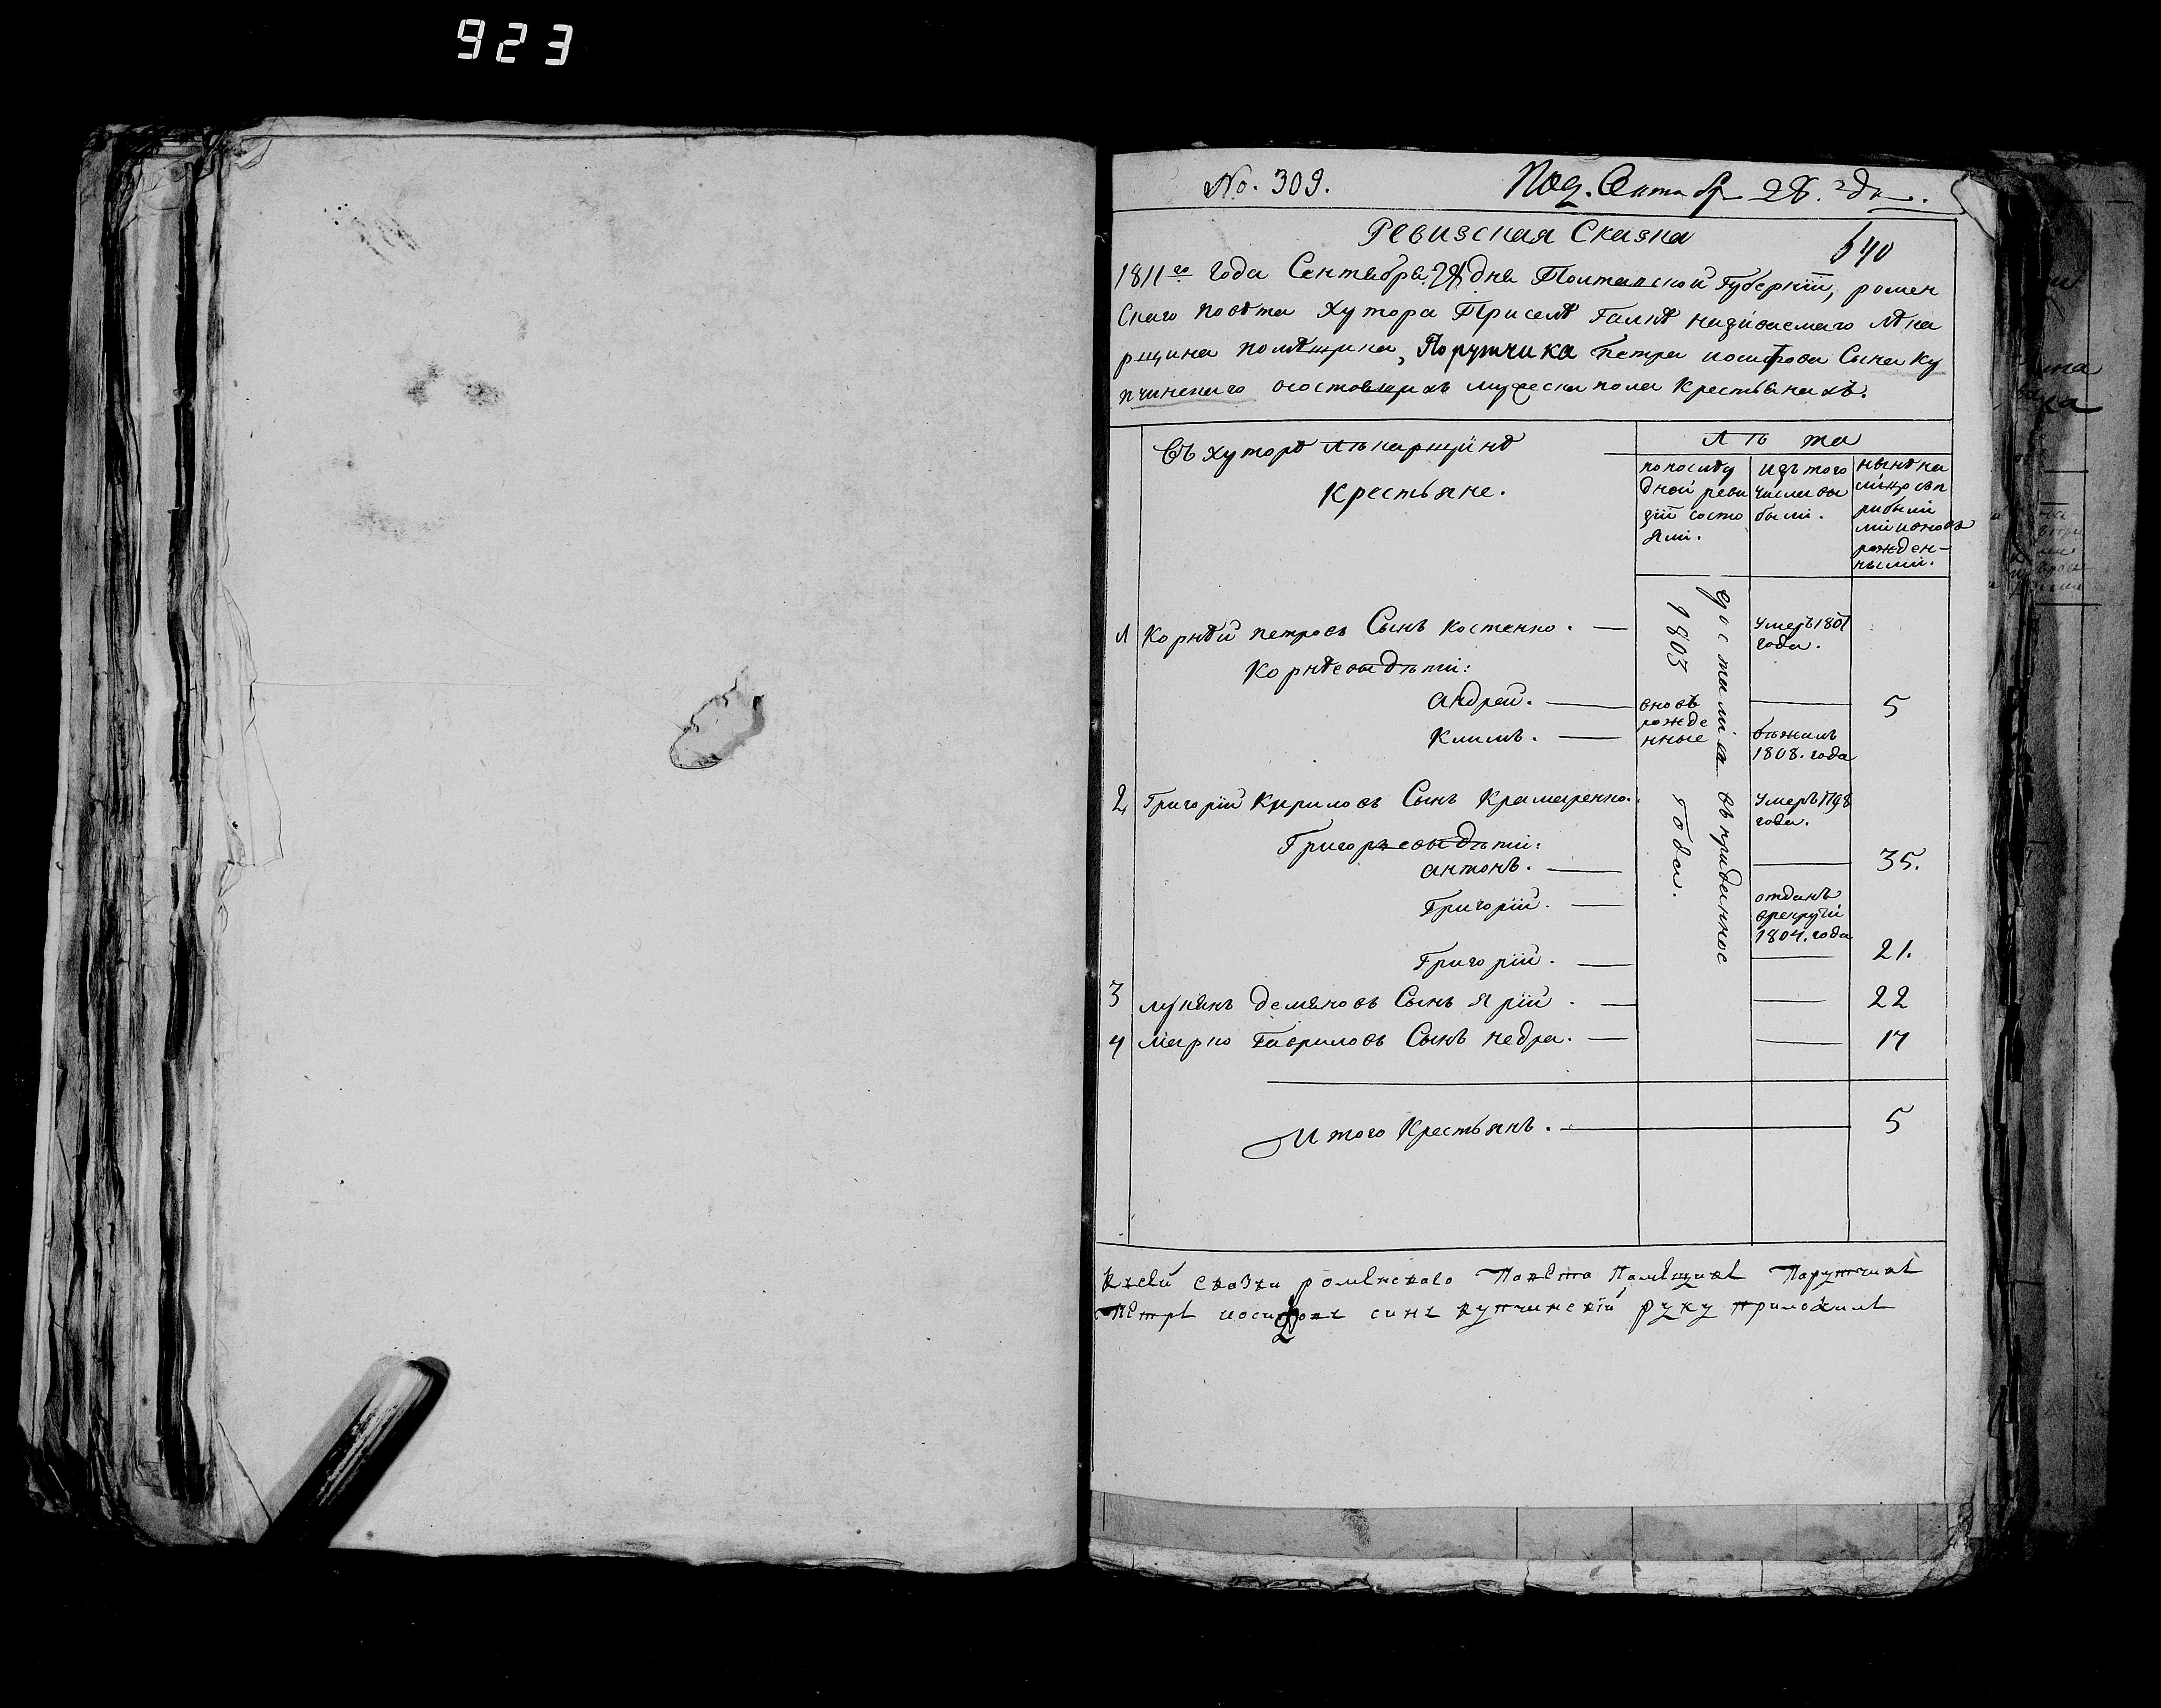 923
No. 309.
Под. Сентябр 28. го дн.
Ревизская Сказка
640
1811го года Сентября 28 дня Полтавской Губернїи, ромен
скаго повѣта Хутора Приселѣ Галкѣ называемаго лѣка
рщина помѣщика, Порутчика Петра иосифова Сына Ку
пчинскаго осостоящихъ мужеска пола крестьянахъ.
Въ хуторѣ лѣкарщинѣ
Крестьяне.
Лѣта
попослѣ
дней реви
зїи состо
яли.
изъ того
числа вы
были.
нынѣ на
лицо съп
рибылы
ми ивновь
рожден-
ными.
1803 года.
1 Корнѣй петровъ Сынъ костенко. —
умеръ 1801
года.
Корнѣевы дѣти:
андрей. —
вновь
рожде
нные
5
Климъ. —
бѣжалъ
1808. года
2 Григорїй Кириловъ Сынъ Крамаренко.
умеръ 1798
года.
Григорьевы дѣти:
антонъ. —
35.
Григорїй. —
отданъ
врекруты
1804. года
Григорїй. —
21.
3 лукянъ демяновъ Сынъ Ярїй. —
22
4 Марко Гавриловъ Сынъ кедра. —
17
Итого Крестьянъ. —
5
Ксей сказки роменского Повета Помещикъ Порутчикъ
Петръ иосифовъ синъ купчинскїй руку приложилъ